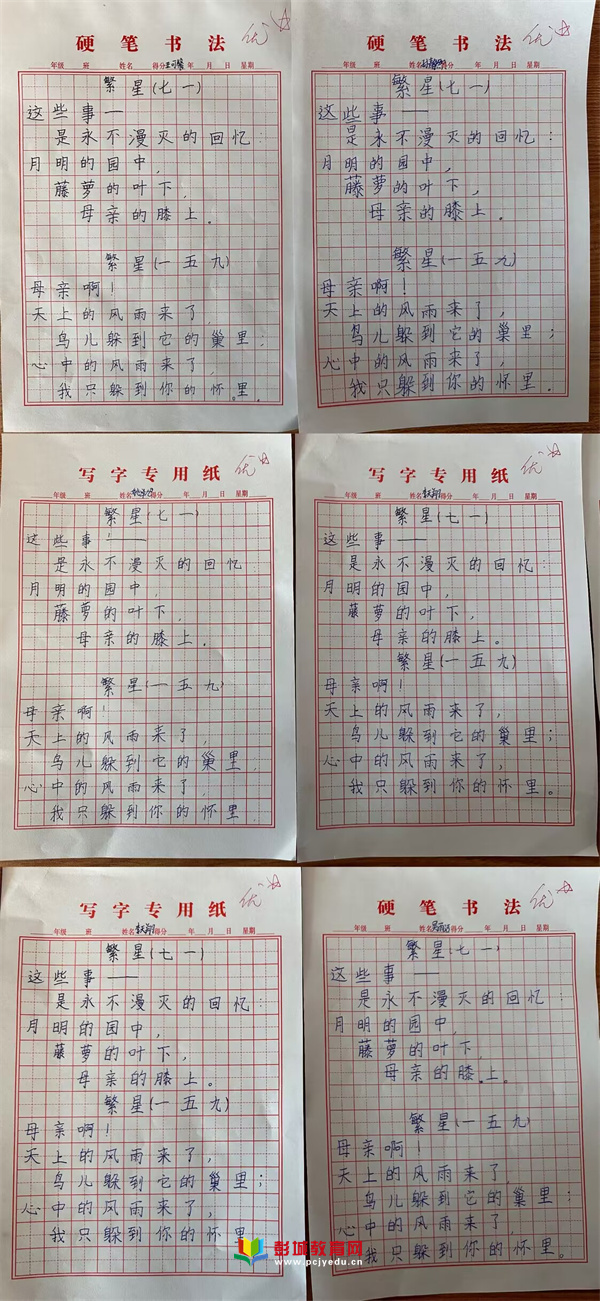 硬笔书法
优
年级 班 姓名 得分 年 月 日 星期
繁星(七一)
这些事——
是永不漫灭的回忆:
月明的园中,
藤萝的叶下,
母亲的膝上。
繁星(一五九)
母亲啊!
天上的风雨来了,
鸟儿躲到它的巢里;
心中的风雨来了,
我只躲到你的怀里。
硬笔书法
优
年级 班 姓名 得分 年 月 日 星期
繁星(七一)
这些事——
是永不漫灭的回忆:
月明的园中,
藤萝的叶下,
母亲的膝上。
繁星(一五九)
母亲啊!
天上的风雨来了,
鸟儿躲到它的巢里;
心中的风雨来了,
我只躲到你的怀里.
写字专用纸
优
年级 班 姓名 得分 年 月 日 星期
繁星(七一)
这些事!——
是永不漫灭的回忆:
月明的园中,
藤萝的叶下,
母亲的膝上。
繁星(一五九)
母亲啊!
天上的风雨来了,
鸟儿躲到它的巢里;
心中的风雨来了,
我只躲到你的怀里
写字专用纸
优
年级 班 姓名 得分 年 月 日 星期
繁星(七一)
这些事——
是永不漫灭的回忆:
月明的园中,
藤萝的叶下,
母亲的膝上。
繁星(一五九)
母亲啊!
天上的风雨来了,
鸟儿躲到它的巢里;
心中的风雨来了,
我只躲到你的怀里。
写字专用纸
优
年级 班 姓名 得分 年 月 日 星期
繁星(七一)
这些事——
是永不漫灭的回忆:
月明的园中,
藤萝的叶下,
母亲的膝上。
繁星(一五九)
母亲啊!
天上的风雨来了,
鸟儿躲到它的巢里;
心中的风雨来了,
我只躲到你的怀里
硬笔书法
优
年级 班 姓名 得分 年 月 日 星期
繁星(七一)
这些事——
是永不漫灭的回忆:
月明的园中,
藤萝的叶下,
母亲的膝上。
繁星(一五九)
母亲啊!
天上的风雨来了,
鸟儿躲到它的巢里;
心中的风雨来了,
我只躲到你的怀里。
彭城教育网
www.pcjyedu.cn